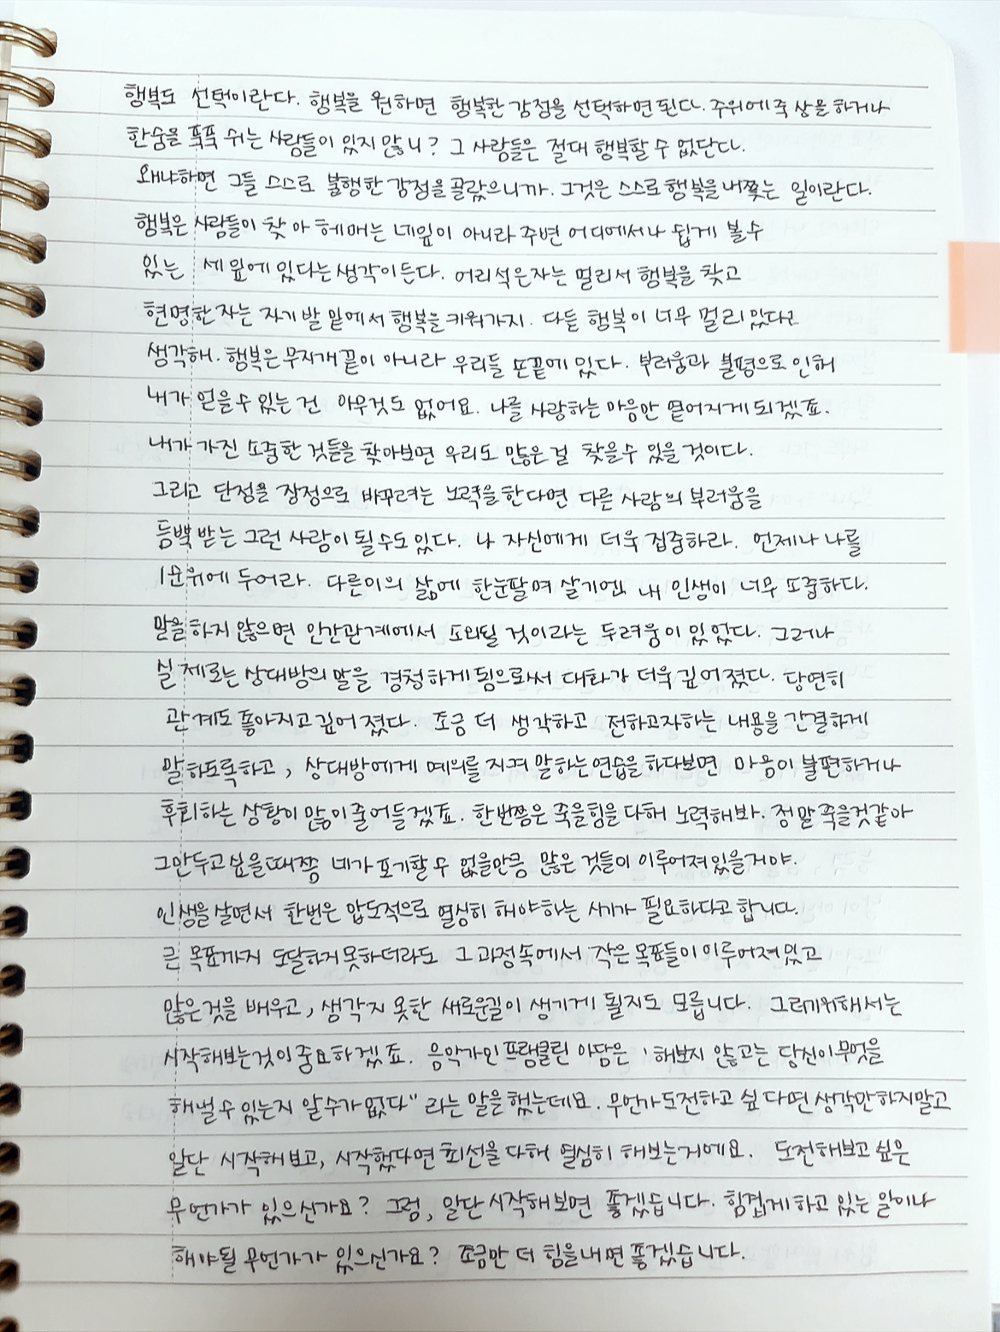 행복도 선택이란다. 행복을 원하면 행복한 감정을 선택하면 된다. 주위에 죽상을 하거나
한숨을 푹푹 쉬는 사람들이 있지 않니? 그 사람들은 절대 행복할 수 없단다.
왜냐하면 그들 스스로 불행한 감정을 골랐으니까. 그것은 스스로 행복을 내쫓는 일이란다.
행복은 사람들이 찾아 헤매는 네잎이 아니라 주변 어디에서나 쉽게 볼 수
있는 세 잎에 있다는 생각이 든다. 어리석은 자는 멀리서 행복을 찾고
현명한 자는 자기 발 밑에서 행복을 키워가지. 다들 행복이 너무 멀리 있다고
생각해. 행복은 무지개 끝이 아니라 우리들 손끝에 있다. 부러움과 불평으로 인해
내가 얻을 수 있는 건 아무것도 없어요. 나를 사랑하는 마음만 옅어지게 되겠죠.
내가 가진 소중한 것들을 찾아보면 우리도 많은 걸 찾을 수 있을 것이다.
그리고 단점을 장점으로 바꾸려는 노력을 한다면 다른 사람의 부러움을
듬뿍 받는 그런 사람이 될 수도 있다. 나 자신에게 더욱 집중하라. 언제나 나를
1순위에 두어라. 다른이의 삶에 한눈팔며 살기엔 내 인생이 너무 소중하다.
말을 하지 않으면 인간관계에서 소외될 것이라는 두려움이 있었다. 그러나
실제로는 상대방의 말을 경청하게 됨으로써 대화가 더욱 깊어졌다. 당연히
관계도 좋아지고 깊어졌다. 조금 더 생각하고 전하고자하는 내용을 간결하게
말하도록하고, 상대방에게 예의를 지켜 말하는 연습을 하다보면 마음이 불편하거나
후회하는 상황이 많이 줄어들겠죠. 한번쯤은 죽을힘을 다해 노력해봐. 정말 죽을것같아
그만두고 싶을 때쯤 네가 포기할 수 없을만큼 많은 것들이 이루어져있을거야.
인생을 살면서 한번은 압도적으로 열심히 해야하는 시기가 필요하다고 합니다.
큰 목표까지 도달하지 못하더라도 그 과정속에서 작은 목표들이 이루어져 있고
많은 것을 배우고, 생각지 못한 새로운길이 생기게 될지도 모릅니다. 그러기위해서는
시작해보는것이 중요하겠죠. 음악가인 프랭클린 아담은 '해보지 않고는 당신이 무엇을
해낼 수 있는지 알 수가 없다" 라는 말을 했는데요. 무언가 도전하고 싶다면 생각만 하지말고
일단 시작해보고, 시작했다면 최선을 다해 열심히 해보는거에요. 도전해보고 싶은
무언가가 있으신가요? 그럼, 일단 시작해보면 좋겠습니다. 힘겹게 하고 있는 일이나
해야될 무언가가 있으신가요? 조금만 더 힘을 내면 좋겠습니다.